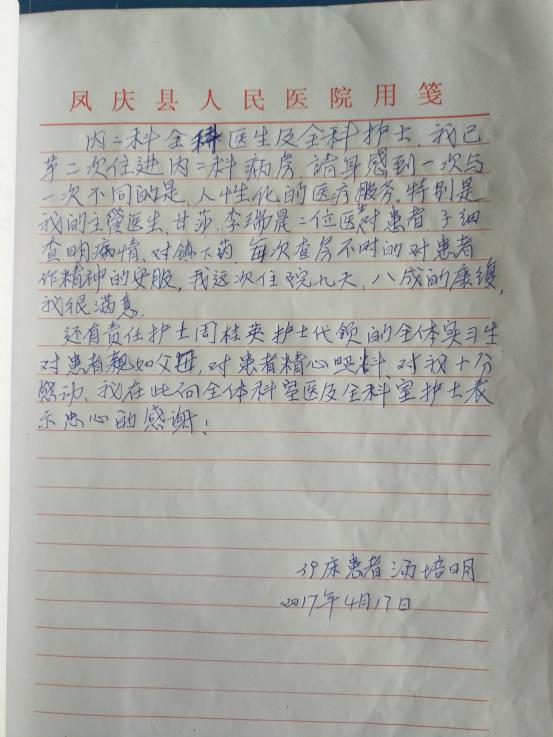 凤庆县人民医院用笺
内二科全科医生及全科护士,我已
第二次住进内二科病房,请耳感到一次与
一次不同的是,人性化的医疗服务,特别是
我的主管医生,甘莎,李瑞晨二位医生对患者,子细
查明病情,对镇下药,每次查房不时的对患者
作精神的安服,我这次住院九天,八成的康缓,
我很满意.
还有责任护士周桂英护士代领的全体实习生
对患者亲如父母,对患者精心照料,对我十分
感动,我在此向全体科室医及全科室护士表
示忠心的感谢!
39床患者 汤培明
2017年4月17日